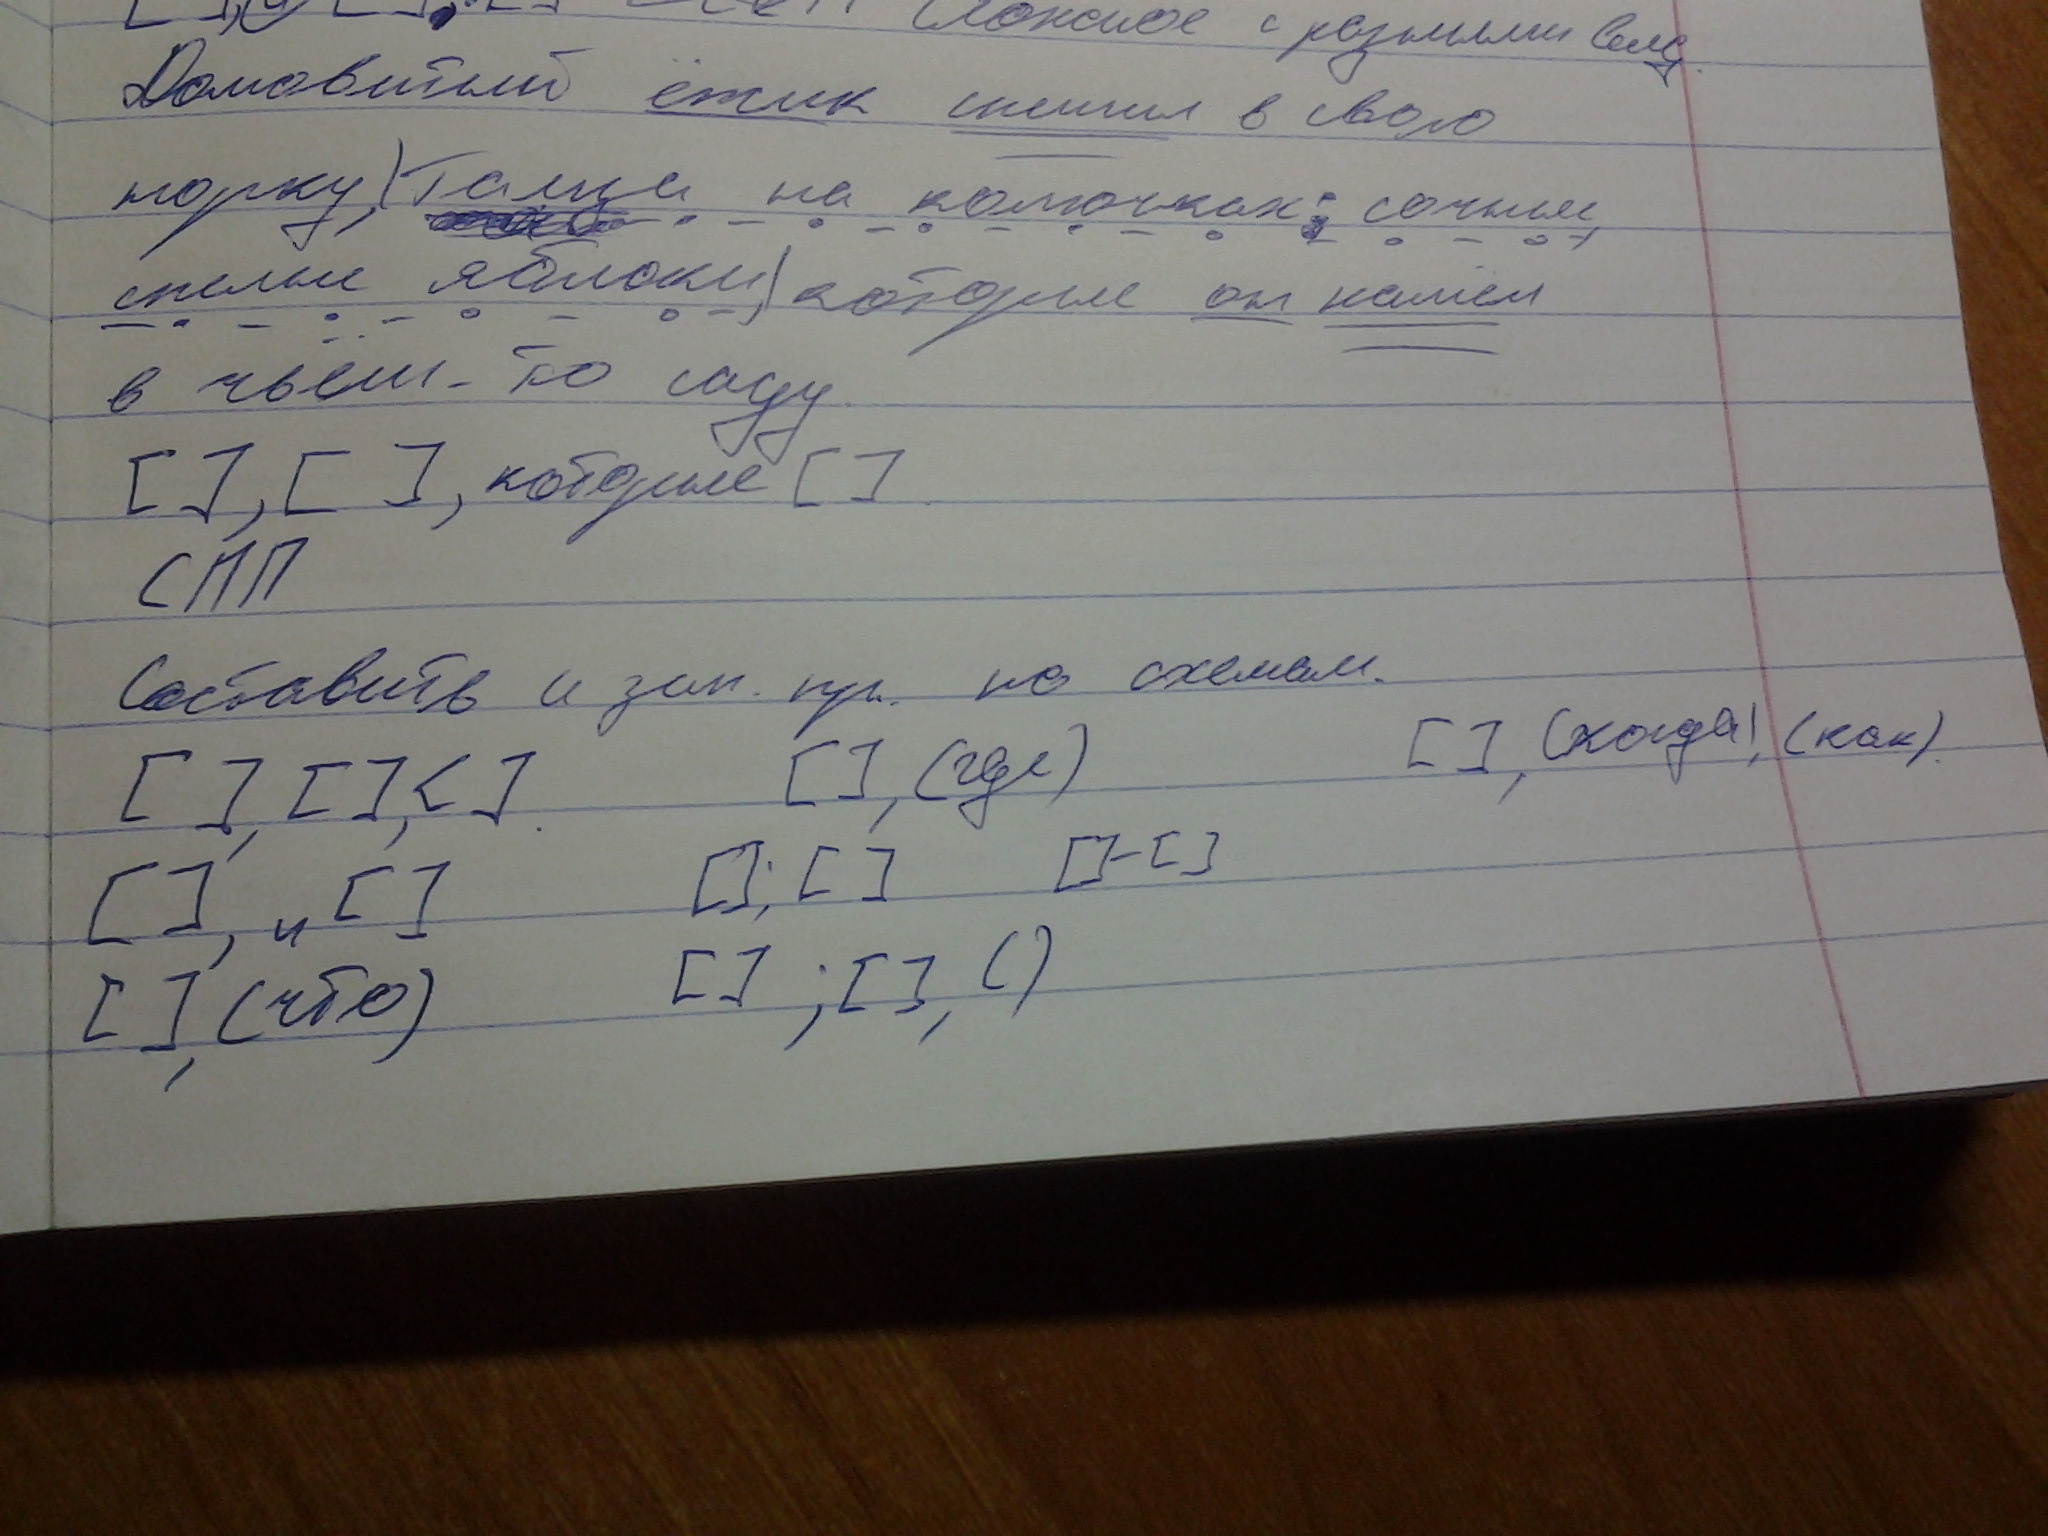 [ ], и [ ], [ ] Сложное с разными
Домовитый ёжик спешил в свою
норку, таща на колючках сочные,
спелые яблоки, которые он нашёл
в чьём-то саду
[ ], [ ], которые [ ]
СПП
Составить и зап. пр. по схемам.
[ ], [ ], < ]. [ ], (где) [ ], (когда), (как).
[ ], и [ ] [ ]; [ ] [ ]-[ ]
[ ], (что) [ ] ; [ ], ( )